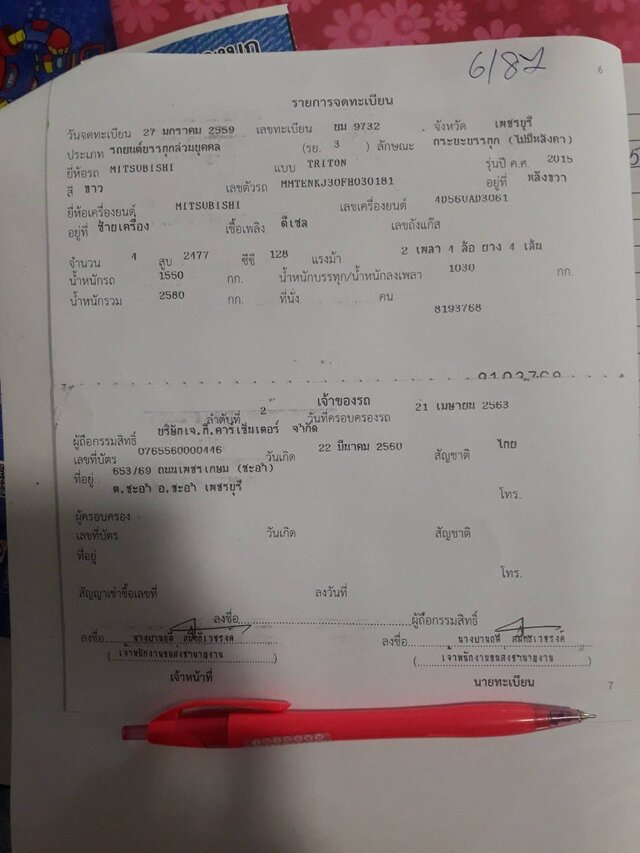 6/87
6
รายการจดทะเบียน
วันจดทะเบียน 27 มกราคม 2559 เลขทะเบียน ขม 9732 จังหวัด เพชรบุรี
ประเภท รถยนต์บรรทุกส่วนบุคคล (รย. 3 ) ลักษณะ กระบะบรรทุก (ไม่มีหลังคา)
ยี่ห้อรถ MITSUBISHI แบบ TRITON รุ่นปี ค.ศ. 2015
สี ขาว เลขตัวรถ MMTENKJ30FH030181 อยู่ที่ หลังขวา
ยี่ห้อเครื่องยนต์ MITSUBISHI เลขเครื่องยนต์ 4D56UAD3061
อยู่ที่ ซ้ายเครื่อง เชื้อเพลิง ดีเซล เลขถังแก๊ส
จำนวน 4 สูบ 2477 ซีซี 128 แรงม้า 2 เพลา 4 ล้อ ยาง 4 เส้น
น้ำหนักรถ 1550 กก. น้ำหนักบรรทุก/น้ำหนักลงเพลา 1030 กก.
น้ำหนักรวม 2580 กก. ที่นั่ง คน
8193768
เจ้าของรถ
ลำดับที่ 2 วันที่ครอบครองรถ 21 เมษายน 2563
ผู้ถือกรรมสิทธิ์ บริษัทเจ.ที.คาร์เซ็นเตอร์ จำกัด
เลขที่บัตร 0765560000446 วันเกิด 22 มีนาคม 2560 สัญชาติ ไทย
ที่อยู่ 653/69 ถนนเพชรเกษม (ชะอำ)
ต.ชะอำ อ.ชะอำ เพชรบุรี
โทร.
ผู้ครอบครอง
เลขที่บัตร วันเกิด สัญชาติ
ที่อยู่
โทร.
สัญญาเช่าซื้อเลขที่ ลงวันที่
ลงชื่อ ผู้ถือกรรมสิทธิ์
ลงชื่อ ลงชื่อ
(เจ้าพนักงานขนส่งชำนาญงาน) (เจ้าพนักงานขนส่งชำนาญงาน)
เจ้าหน้าที่ นายทะเบียน
7